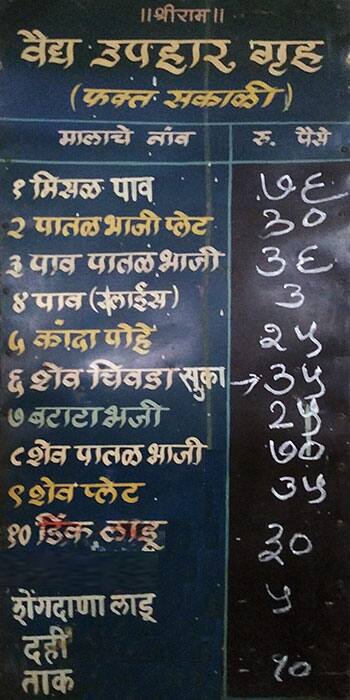 ॥श्रीराम॥
वैद्य उपहार गृह
(फक्त सकाळी)
मालाचे नांव रु. पैसे
१ मिसळ पाव ७६
२ पातळ भाजी प्लेट ३०
३ पाव पातळ भाजी ३६
४ पाव (स्लाईस) ३
५ कांदा पोहे २५
६ शेव चिवडा सुका → ३५
७ बटाटा भजी २५
८ शेव पातळ भाजी ७०
९ शेव प्लेट ३५
१० डिंक लाडू ३०
शेंगदाणा लाडू ५
दही
ताक १०